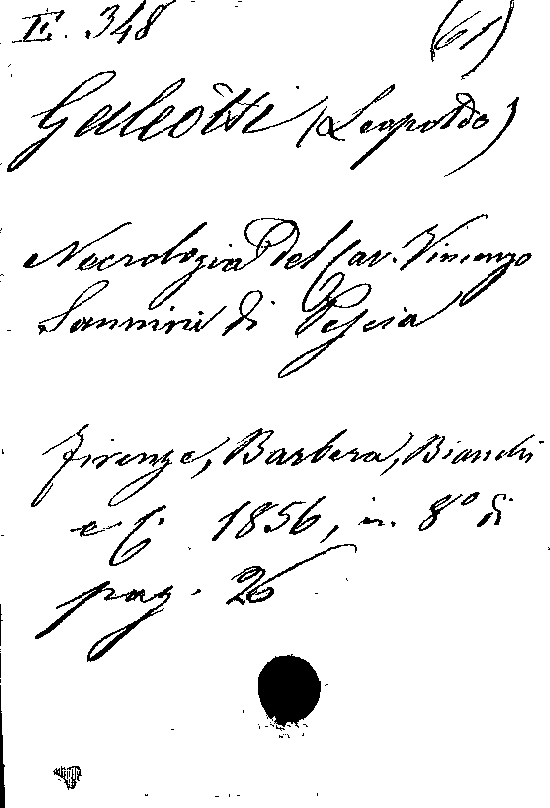 E. 348 (61)
Galeotti (Leopoldo)
Necrologia Del Cav. Vincenzo
Sannini di Pescia
Firenze, Barbera, Bianchi
e C. 1856, in 8° di
pag. 26